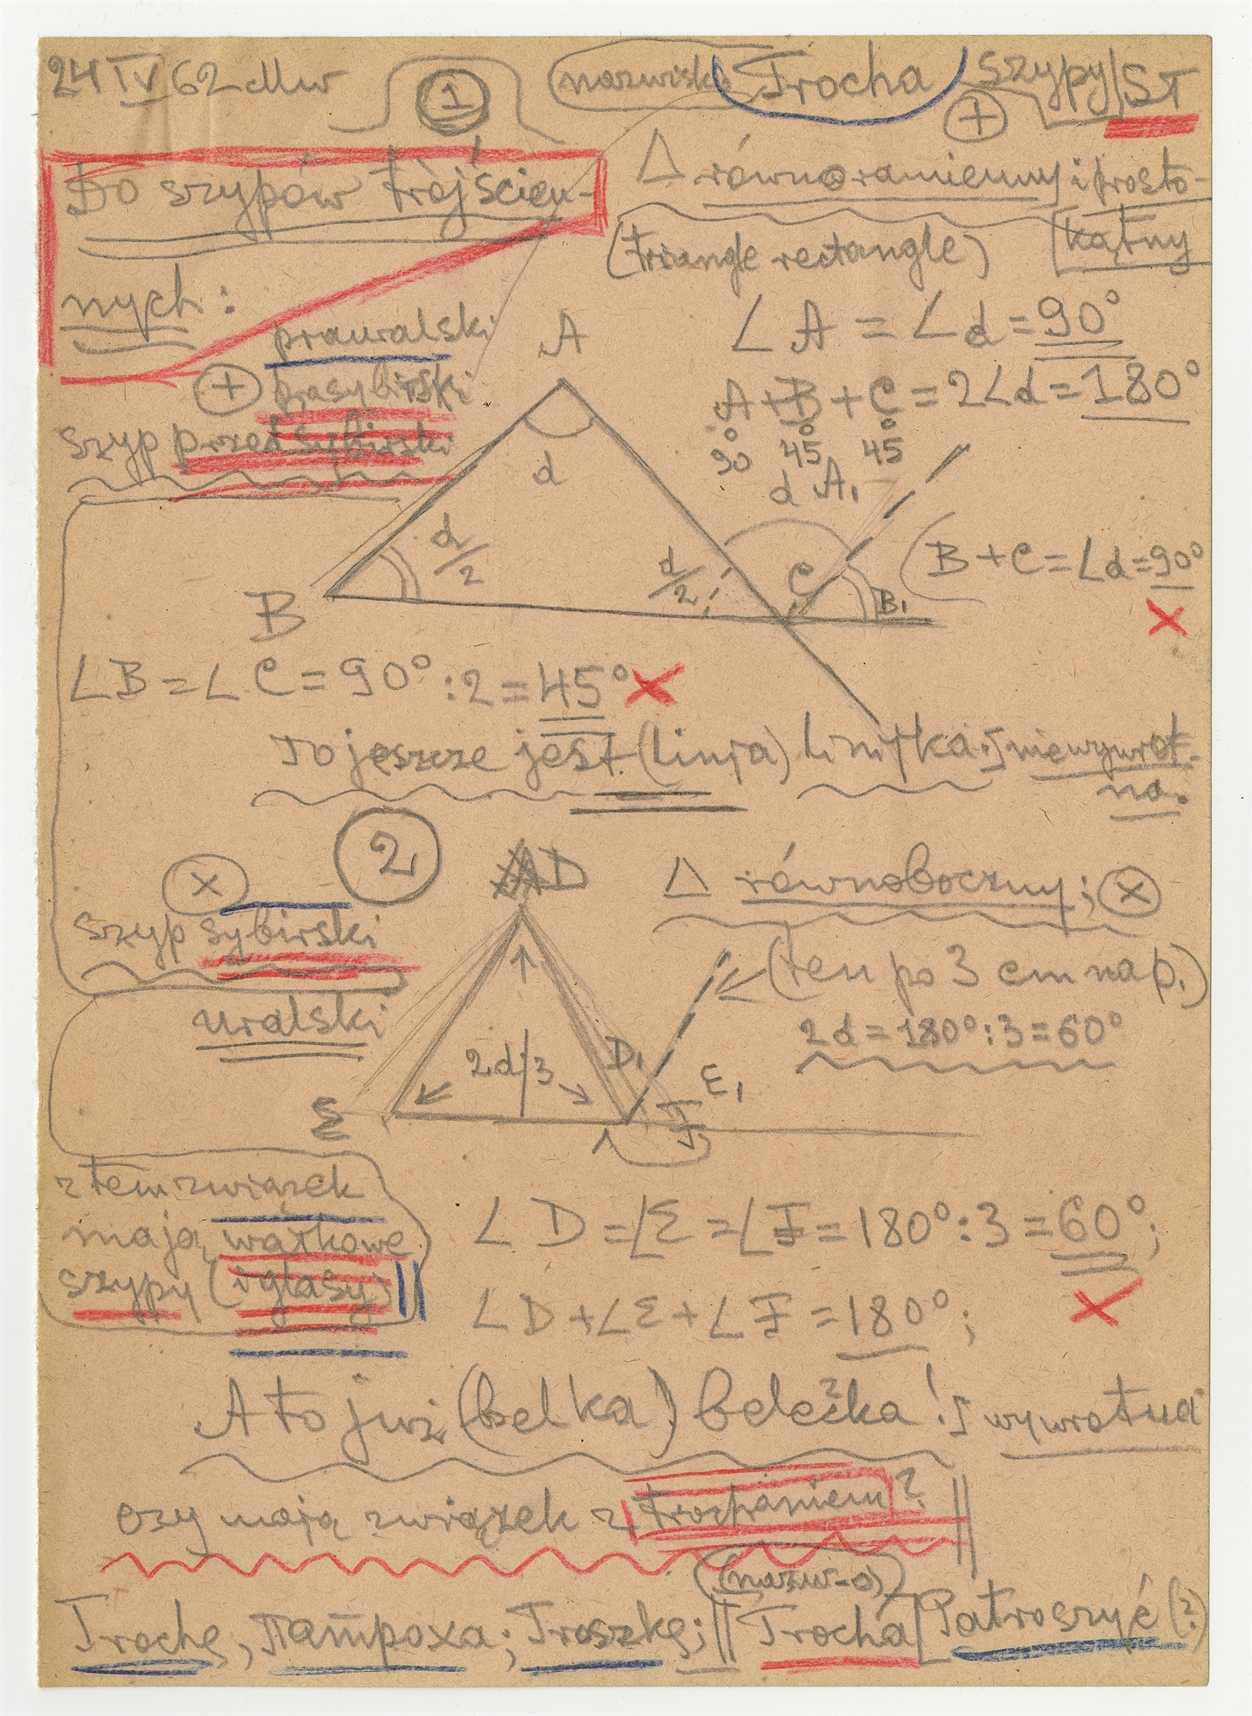 24 IV 62 Mw
1
nazwisko Trocha szypy ST
+
Do szypów trójścien-
nych:
Δ równoramienny i prosto-
kątny
(triangle rectangle)
prauralski
+ prasybirski
szyp przedsybirski
A
∠A = ∠d = 90°
A + B + C = 2∠d = 180°
90° 45° 45°
d A₁
d
d/2
d/2
C
B₁
B
B + C = ∠d = 90°
×
∠B = ∠C = 90° : 2 = 45° ×
To jeszcze jest (linja) linijka; niewywrot-
na.
2
× 
szyp sybirski
uralski
D
Δ równoboczny; ×
(ten po 3 cm nap.)
2d = 180° : 3 = 60°
2d/3
D₁
E₁
Σ
F
z tem związek
mają wątkowe
szypy (i głasy)
∠D = ∠Σ = ∠F = 180° : 3 = 60°;
×
∠D + ∠Σ + ∠F = 180°;
A to już (belka) beleczka! wywrotna
czy mają związek z trochaniem?
(nazw-o)
Trochę, патроха; Troszkę; || Trocha [Patroszyć (?)